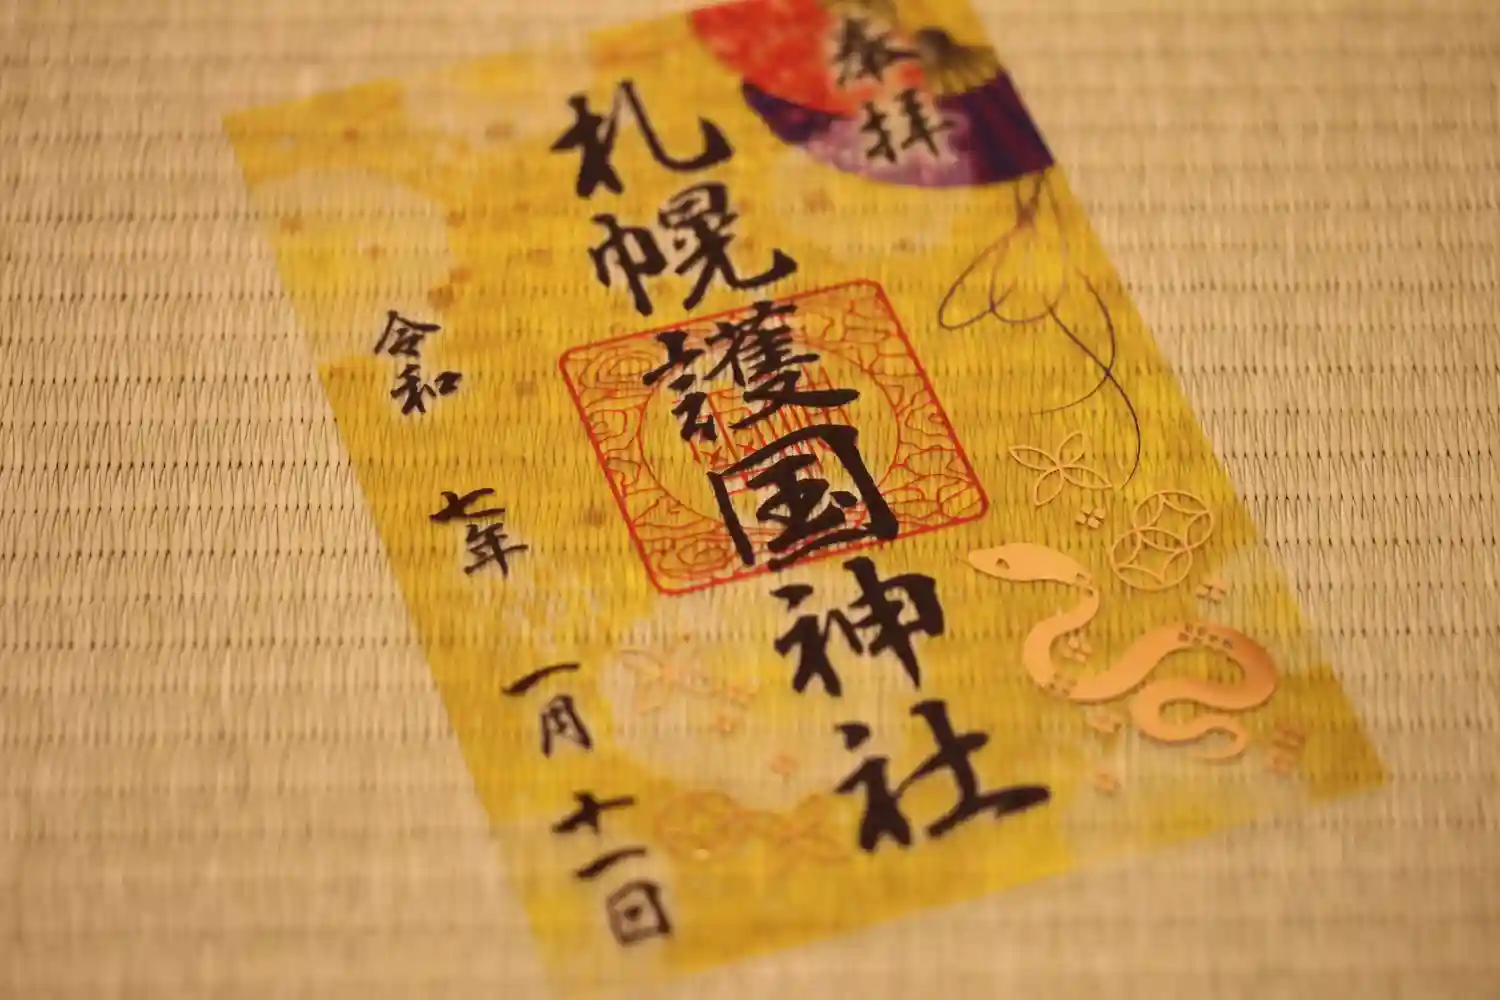 奉拝
札幌護国神社
令和七年一月十一日